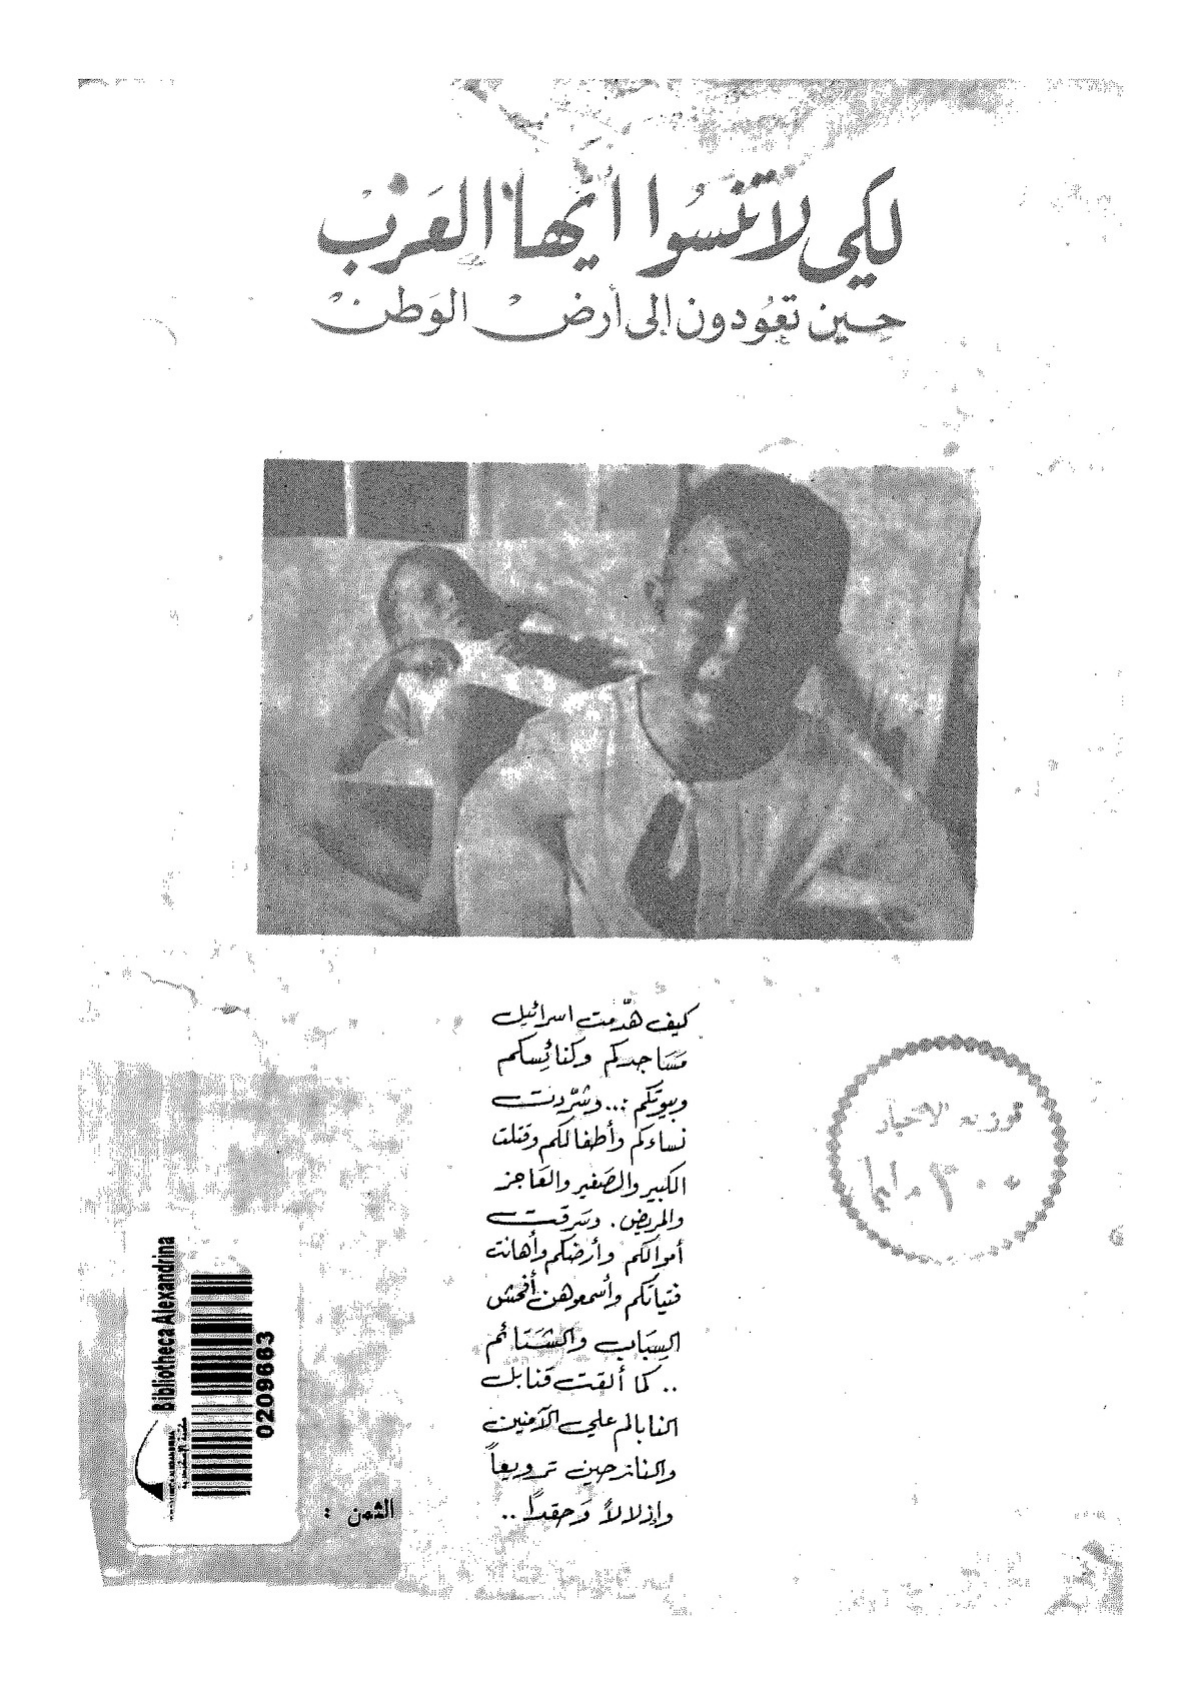 لكي لا تنسوا أيها العرب
حين تعودون إلى أرض الوطن
كيف هدّمت اسرائيل
مَسَاجدكم وكنائسكم
وبيوتكم ... وشرّدت
نساءكم وأطفالكم وقتلت
الكبير والصَغير والعَاجز
والمريض . وسَرقت
أموالكم وأرضكم وأهانت
فتياتكم وأسمعوهن أفحش
السِبَاب والشَتَائم
.. كما ألقت قنابل
النابالم على الآمنين
والنازحين ترويعاً
وإذلالاً وَحقداً ..
توزيع الاخبار
٣٠٠ مليم
Bibliotheca Alexandrina
0209663
الثمن :